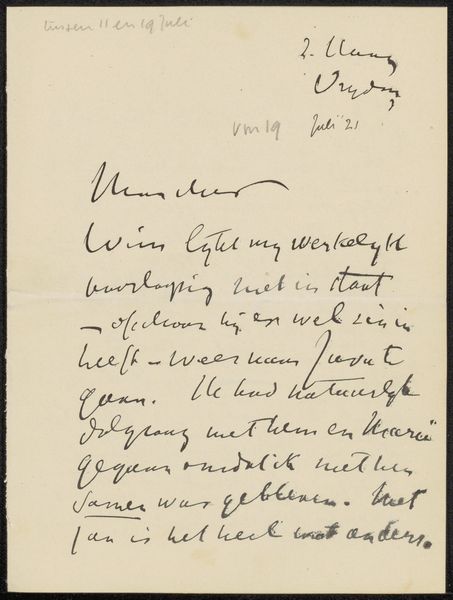 tussen 11 en 19 Juli
Vrydag
voor 19 Juli 21
Mon cher
Wim lykt my werkelyk
voorloopig niet in staat
— ofschoon hy er wel zin in
heeft — weer naar Java te
gaan. Ik had natuurlyk
dolgraag met hem en Marie
gegaan omdat ik met hen
samen was gebleven. Met
Jan is het heel wat anders.